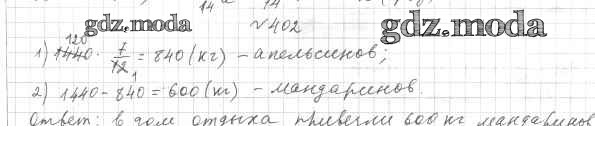 14 14
gdz.moda №402 gdz.moda
1) 1440 · 7/12 = 840 (кг) – апельсинов;
2) 1440 - 840 = 600 (кг) – мандаринов.
Ответ: в дом отдыха привезли 600 кг мандаринов